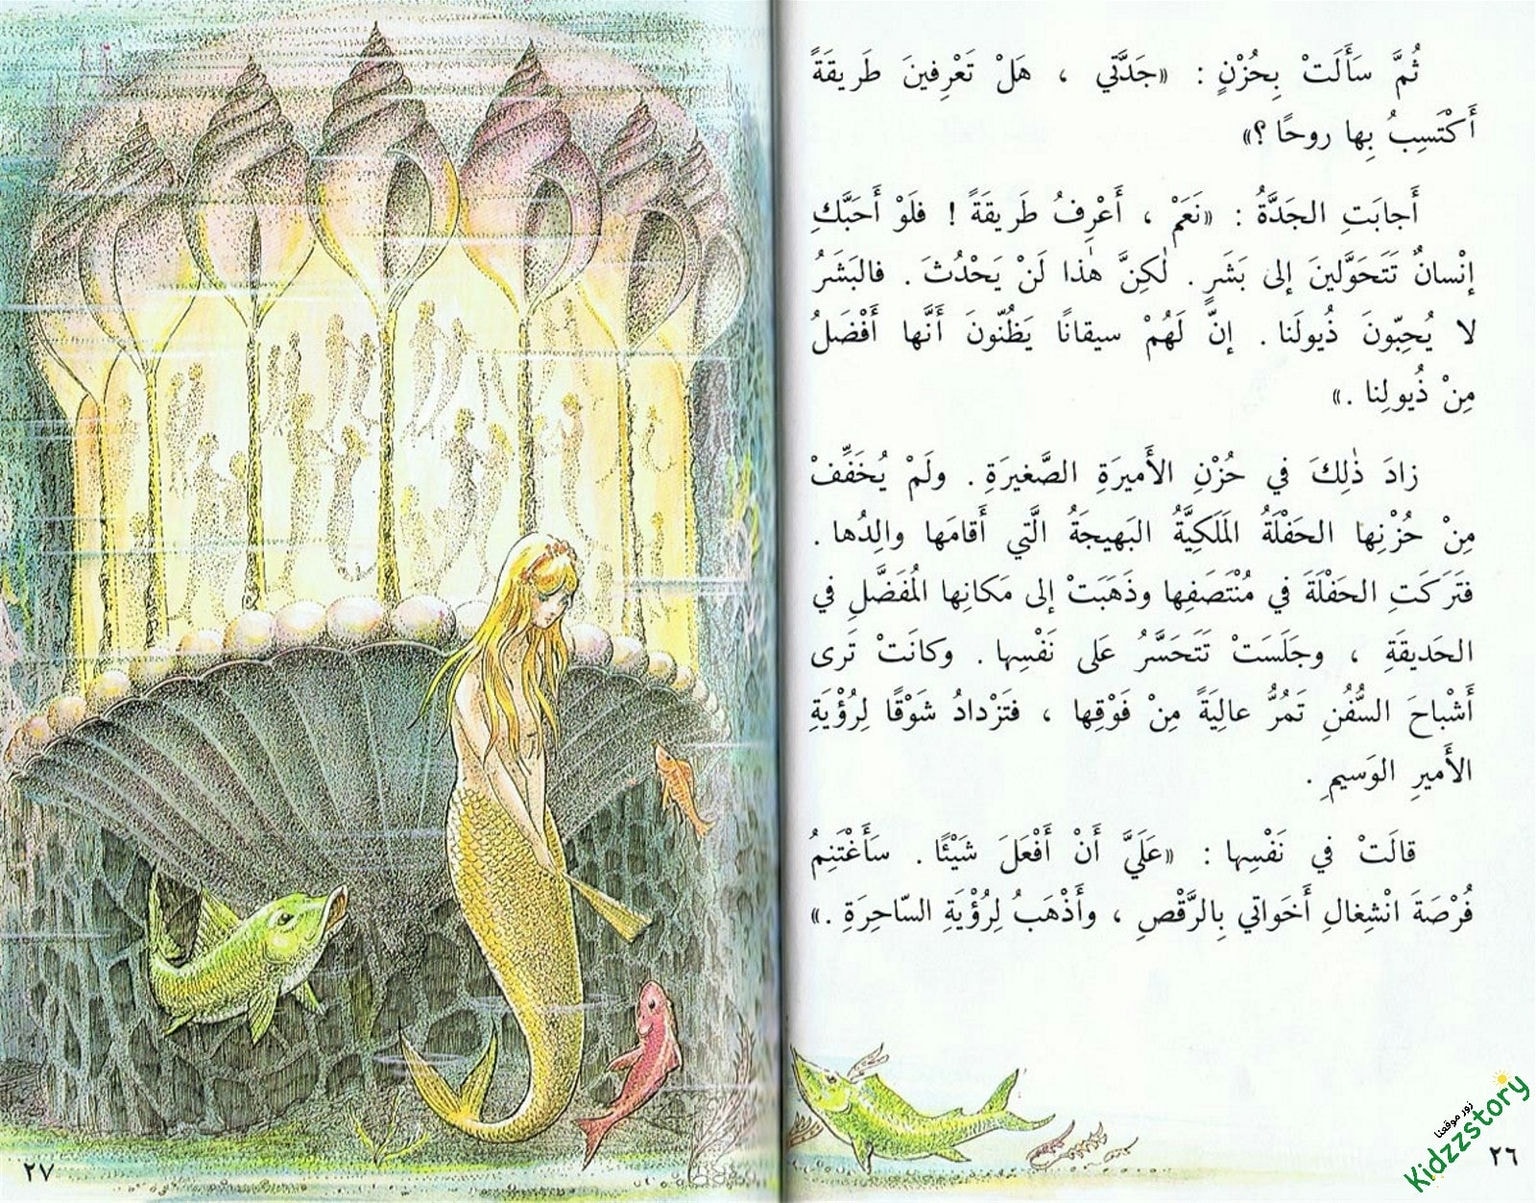 ثُمَّ سَأَلَتْ بِحُزْنٍ : «جَدَّتي ، هَلْ تَعْرِفينَ طَريقَةً
أَكْتَسِبُ بِها روحًا ؟»
أَجابَتِ الجَدَّةُ : «نَعَمْ ، أَعْرِفُ طَريقَةً ! فَلَوْ أَحَبَّكِ
إنْسانٌ تَتَحَوَّلينَ إلى بَشَرٍ . لٰكِنَّ هٰذا لَنْ يَحْدُثَ . فالبَشَرُ
لا يُحِبّونَ ذُيولَنا . إنَّ لَهُمْ سيقانًا يَظُنّونَ أَنَّها أَفْضَلُ
مِنْ ذُيولِنا .»
زادَ ذٰلِكَ في حُزْنِ الأَميرَةِ الصَّغيرَةِ . ولَمْ يُخَفِّفْ
مِنْ حُزْنِها الحَفْلَةُ المَلَكِيَّةُ البَهيجَةُ الَّتي أَقامَها والِدُها .
فَتَرَكَتِ الحَفْلَةَ في مُنْتَصَفِها وذَهَبَتْ إلى مَكانِها المُفَضَّلِ في
الحَديقَةِ ، وجَلَسَتْ تَتَحَسَّرُ عَلى نَفْسِها . وكانَتْ تَرى
أَشْباحَ السُّفُنِ تَمُرُّ عالِيَةً مِنْ فَوْقِها ، فتَزْدادُ شَوْقًا لِرُؤْيَةِ
الأَميرِ الوَسيمِ .
قالَتْ في نَفْسِها : «عَلَيَّ أَنْ أَفْعَلَ شَيْئًا . سَأَغْتَنِمُ
فُرْصَةَ انْشِغالِ أَخَواتي بِالرَّقْصِ ، وأَذْهَبُ لِرُؤْيَةِ السّاحِرَةِ .»
زور موقعنا
Kidzzstory
٢٦
٢٧